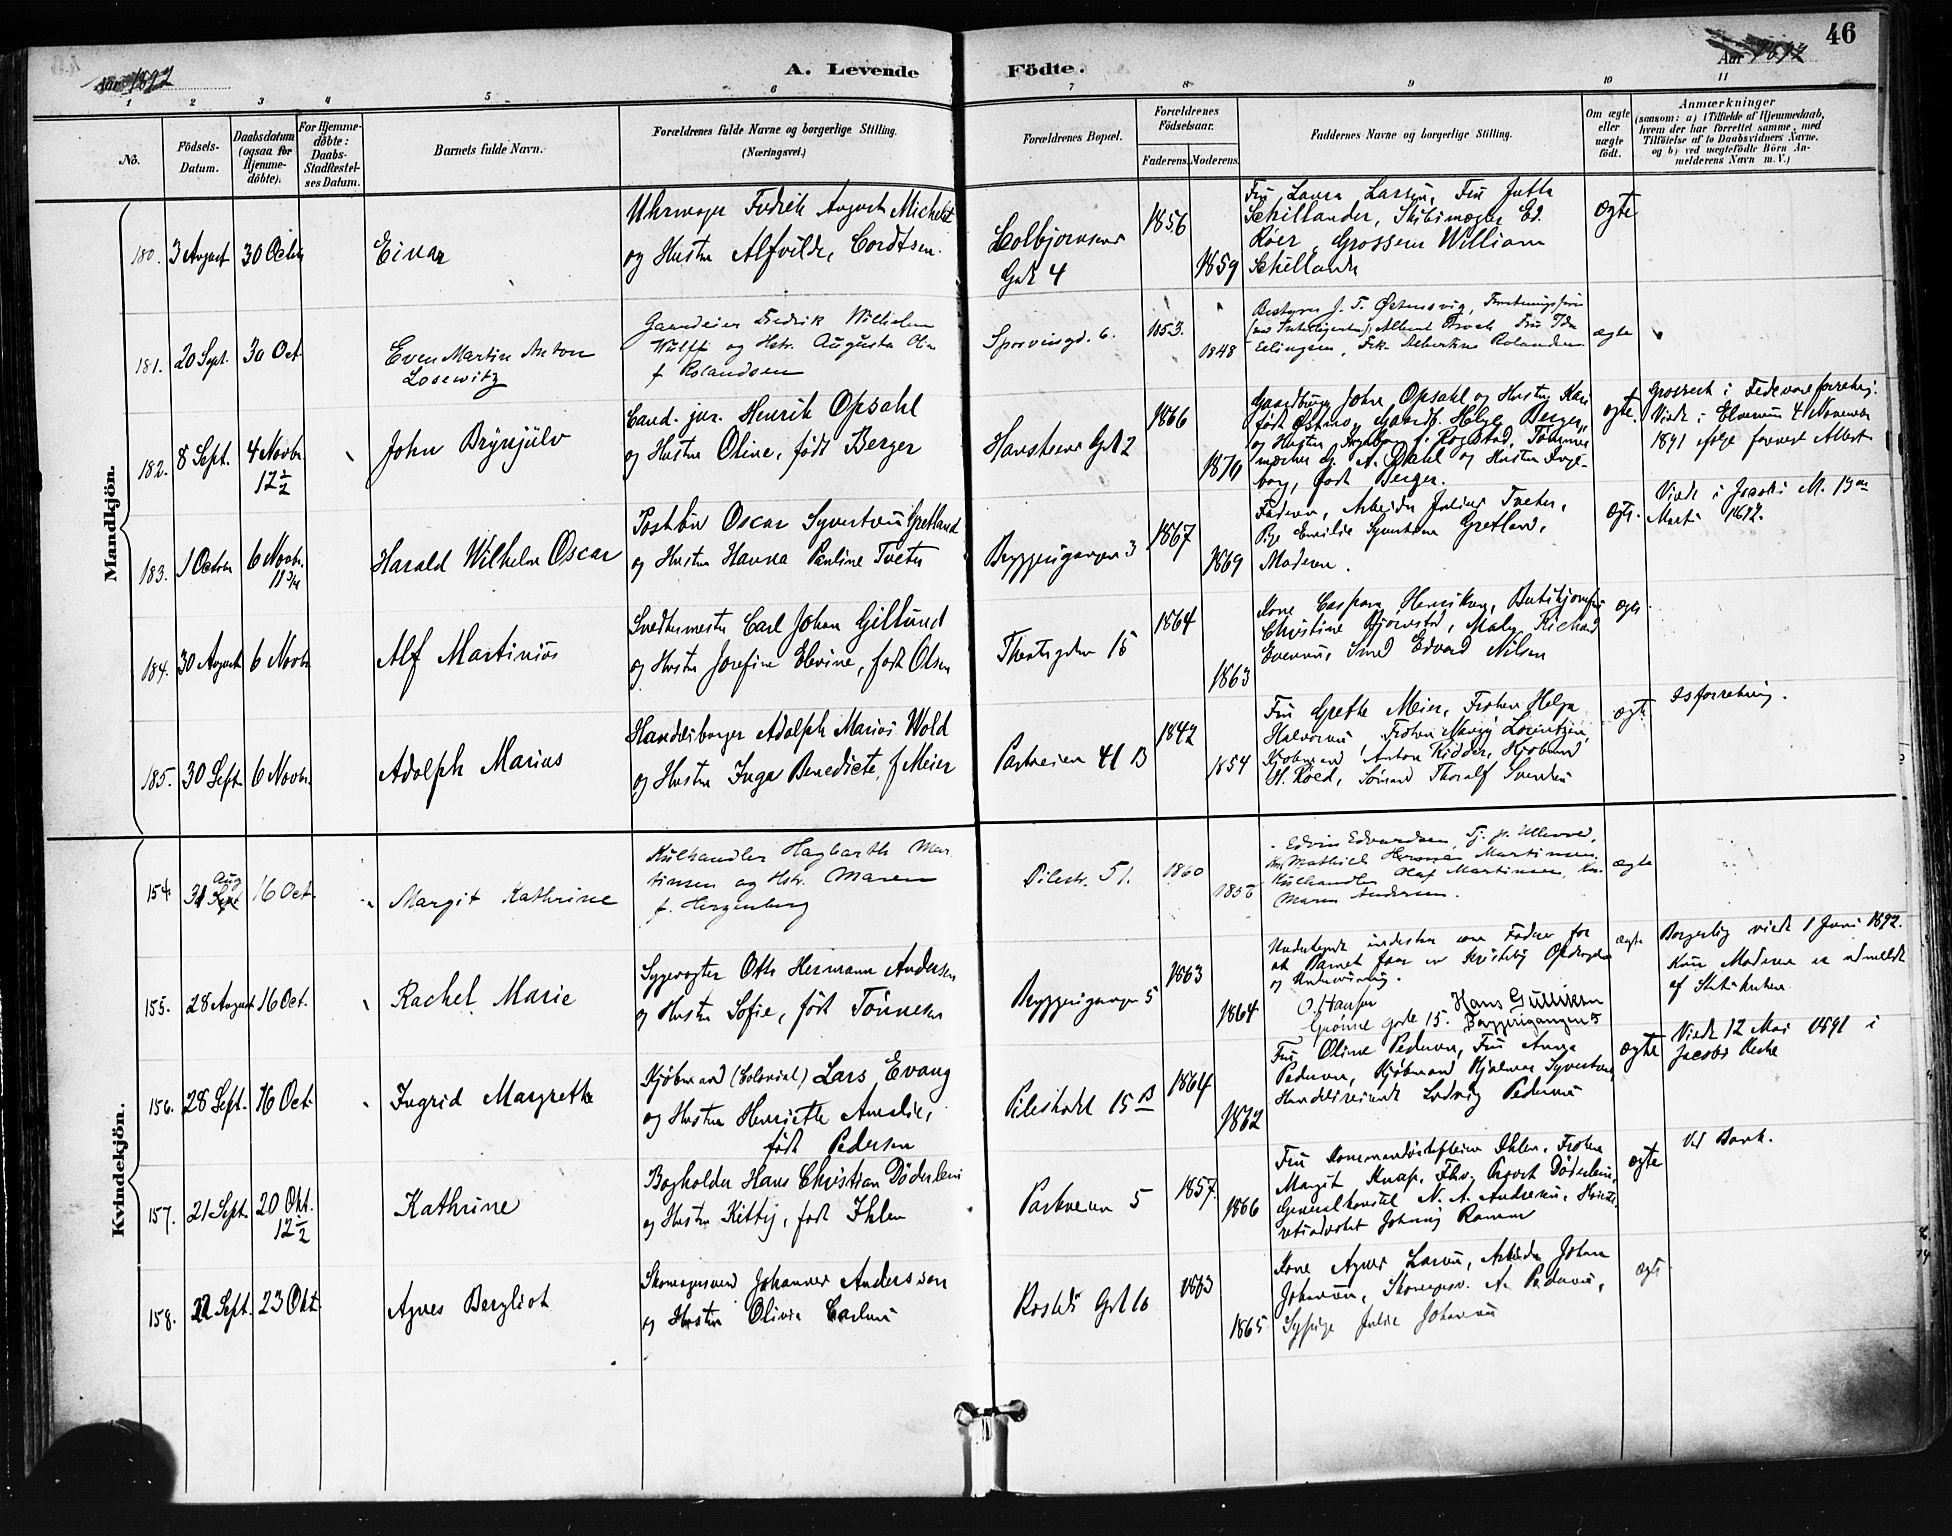 46
Aar 1892
A. Levende
Födte.
Aar 1892
1 2 3 4 5 6 7 8 9 10 11
No.
Födsels-
Datum.
Daabsdatum
(ogsaa for
Hjemme-
döbte).
For Hjemme-
döbte:
Daabs-
Stadfæstel-
ses Datum.
Barnets fulde Navn.
Forældrenes fulde Navne og borgerlige Stilling.
(Næringsvei.)
Forældrenes Bopæl.
Forældrenes
Födselsaar.
Faderens. Moderens.
Faddernes Navne og borgerlige Stilling.
Om ægte
eller
uægte
födt.
Anmærkninger
(saasom: a) i Tilfælde af Hjemmedaab,
hvem der har forrettet samme, med
Tilföielse af to Daabsvidners Navne.
og b) ved uægtefödte Börn An-
melderens Navn m. V.)
Mandkjön.
180. 3 August 30 Octbr
Einar
Uhrmager Fredrik August Michelet
og Hustru Alfvilde, Cordtsen.
Colbjørnsens
Gade 4
1856
1859
Fru Laura Larsen, Fru Jutta
Schillander, Skibsmægler Ed.
Röer, Grosserer William
Schillander
ægte
181. 20 Sept. 30 Oct
Even Martin Anton
Losewitz
Gaardeier Fredrik Wilhelm
Wulff og Hstr. Augusta
f. Rolandsen
Sporveisgd. 6.
1853.
1848
Bestyrer J. T.
Albert Fru Ida
Erlingsen, Frk. Albertine Rolandsen
ægte
182. 8 Sept. 4 Novbr
12 1/2
John Brynjülv
Cand. jur. Henrik Opsahl
og Hustru Oline, født Berger
Hansteens Gd 2
1866
1870
Gaardbruger John Opsahl og Hustru Kari
født Østmo, Gaardb. Helge Berger,
og Hustru Ingeborg f. Rogstad,
A. Opsahl og Hustru Inge-
borg, født Berger.
ægte.
Grosserer i Fedevareforretng.
Viede i Elverum 4 November
1891 ifølge forevist Attest
183. 1 Octbr 6 Novbr.
11 3/4
Harald Wilhelm Oscar
Postbud Oscar Syvertsen Gretland
og Hustru Hanna Pauline Tveter
Bryggerigangen 3
1867
1869
Faderen, Arbeider Julius Tveter,
Pige Emilie Syvertsen Gretland,
Moderen.
ægte.
Viede i Jacobs M. 13de
Marts 1892.
184. 30 August 6 Novbr
Alf Martinius
Snedkermester Carl Johan Gillund
og Hustru Josefine Elevine, født Olsen
Thereses gaden 15
1864
1863
Kone Caspara Henriksen,
Christine Bjørnstad, Maler Richard
Evensen, Smed Edvard Nilsen
ægte
185. 30 Sept. 6 Novbr.
Adolph Marius
Handelsborger Adolph Marius Wold
og Hustru Inga Benedicte, f Meier
Parkveien 41 B
1842
1854
Fru Grethe Meier, Frøken Helga
Halvorsen, Frøken Mary Lorentzen,
Kjøbmand Anton Kidder, Kjøbmand
H. Röed, Sømand Thoralf Svendsen
ægte
Isforretning.
Kvindekjön.
154. 31 Aug 16 Oct.
Margit Kathrine
Kulhandler Hagbarth Mar
tinsen og Hstr. Maren
f. Herzenberg
Pilestr. 51.
1860
Edvin Edvardsen, Tj. p. Ullevold,
Mathilde Martinsen,
Kulhandler Olaf Martinsen,
Maren Andersen.
ægte
155. 28 August 16 Oct.
Rachel Marie
Sygevogter Otto Hermann Andersen
og Hustru Sofie, født Tønnesen
Bryggerigangen 5
1863
1864
Undertegnede indestaar som Faddere for
at Barnet faar en kristelig Opdragelse
og Undervisning.
O. Hansen
Grønne gade 15. Hans Gulliksen
Bryggerigangen 5
ægte
Borgerlig viede 1 Juni 1892.
Kun Moderen er udmeldt
af Statskirken.
156. 28 Sept. 16 Oct.
Ingrid Margrethe
Kjøbmand (Colonial) Lars Evang
og Hustru Henriette Amalie,
født Pedersen
Pilestrædet 15 B
1864
1862
Fru Oline Pedersen, Fru Anna
Pedersen, Kjøbmand Hjalmar Syvertsen,
Handelsreisende Ludvig Pedersen
ægte
Viede 12 Mai 1891 i
Jacobs Kirke
157. 21 Sept. 20 Okt.
12 1/2
Kathrine
Bogholder Hans Christian Döderlein
og Hustru Kitty, født Ihlen
Parkveien 5
1857
1866
Fru Ihlen, Frøken
Margit Knap, August Döderlein,
Generalkonsul N. A. Andresen, Høieste-
retsadvokat Johannes Ramm
ægte
Ved Bank.
158. 22 Sept. 23 Okt.
Agnes Bergliot
Skomagersvend Johannes Andersson
og Hustru Olivia Carlsen
Rosteds Gd 16
1863
1865
Kone Agnes Larsen, Arbeider Johan
Johansen, Skomagersv. A. Pedersen,
Sypige Julie Johansen
ægte